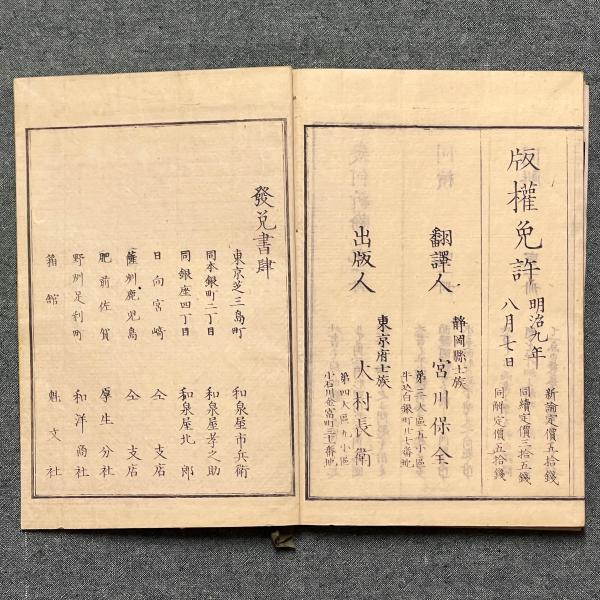 版權免許
明治九年
八月七日
新論定價五拾錢
同續定價三拾五錢
同附定價五拾錢
翻譯人
靜岡縣士族
宮川保全
第三大區五小區
牛込白銀町廿七番地
出版人
東京府士族
大村長衛
第四大區九小區
小石川金富町三十番地
發兌書肆
東京芝三島町 和泉屋市兵衛
同本銀町二丁目 和泉屋孝之助
同銀座四丁目 和泉屋北郎
日向宮崎 仝支店
薩州鹿児島 仝支店
肥前佐賀 厚生分社
野州足利町 和洋商社
箱館 魁文社